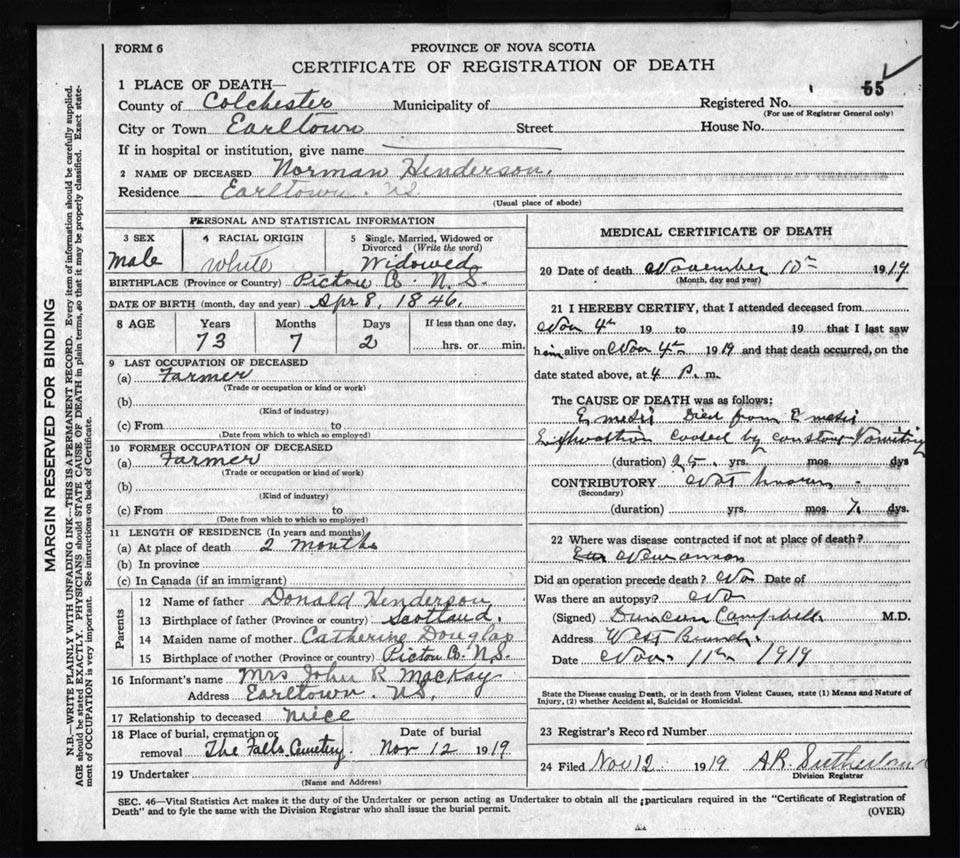 FORM 6
PROVINCE OF NOVA SCOTIA
CERTIFICATE OF REGISTRATION OF DEATH
55
1 PLACE OF DEATH—
County of Colchester Municipality of Registered No.
(For use of Registrar General only)
City or Town Earltown Street House No.
If in hospital or institution, give name
2 NAME OF DECEASED Norman Henderson.
Residence Earltown. N.S.
(Usual place of abode)
PERSONAL AND STATISTICAL INFORMATION
3 SEX 4 RACIAL ORIGIN 5 Single, Married, Widowed or Divorced (Write the word)
Male White Widowed
BIRTHPLACE (Province or Country) Pictou Co. N.S.
DATE OF BIRTH (month, day and year) Apr 8, 1846.
8 AGE Years Months Days If less than one day,
73 7 2 hrs. or min.
9 LAST OCCUPATION OF DECEASED
(a) Farmer
(Trade or occupation or kind or work)
(b)
(Kind of industry)
(c) From to
(Date from which to which so employed)
10 FORMER OCCUPATION OF DECEASED
(a) Farmer
(Trade or occupation or kind of work)
(b)
(Kind of industry)
(c) From to
(Date from which to which so employed)
11 LENGTH OF RESIDENCE (In years and months)
(a) At place of death 2 months
(b) In province
(c) In Canada (if an immigrant)
Parents
12 Name of father Donald Henderson
13 Birthplace of father (Province or country) Scotland.
14 Maiden name of mother Catherine Douglas
15 Birthplace of mother (Province or country) Pictou Co. N.S.
16 Informant's name Mrs John R MacKay
Address Earltown. N.S.
17 Relationship to deceased niece
18 Place of burial, cremation or Date of burial
removal The Falls Cemetery. Nov 12 1919
19 Undertaker
(Name and Address)
MEDICAL CERTIFICATE OF DEATH
20 Date of death November 10th 1919
(Month, day and year)
21 I HEREBY CERTIFY, that I attended deceased from
Nov 4th 19 to 19 that I last saw
him alive on Nov 4th 1919 and that death occurred, on the
date stated above, at 4 P. m.
The CAUSE OF DEATH was as follows:
Emesis Died from Emesis
by constant Vomiting
(duration) 25. yrs. mos. dys
CONTRIBUTORY Not known
(Secondary)
(duration) yrs. mos. 7. dys.
22 Where was disease contracted if not at place of death?
Did an operation precede death? No Date of
Was there an autopsy? No
(Signed) Duncan Campbell M.D.
Address West Branch.
Date Nov. 11th 1919
State the Disease causing Death, or in death from Violent Causes, state (1) Means and Nature of
Injury, (2) whether Accidental, Suicidal or Homicidal.
23 Registrar's Record Number
24 Filed Nov 12 1919 A.R. Sutherland
Division Registrar
SEC. 46—Vital Statistics Act makes it the duty of the Undertaker or person acting as Undertaker to obtain all the particulars required in the "Certificate of Registration of
Death" and to fyle the same with the Division Registrar who shall issue the burial permit.
(OVER)
MARGIN RESERVED FOR BINDING
N.B.—WRITE PLAINLY WITH UNFADING INK—THIS IS A PERMANENT RECORD. Every item of information should be carefully supplied.
AGE should be stated EXACTLY. PHYSICIANS should STATE CAUSE OF DEATH in plain terms, so that it may be properly classified. Exact state-
ment of OCCUPATION is very important. See instructions on back of Certificate.